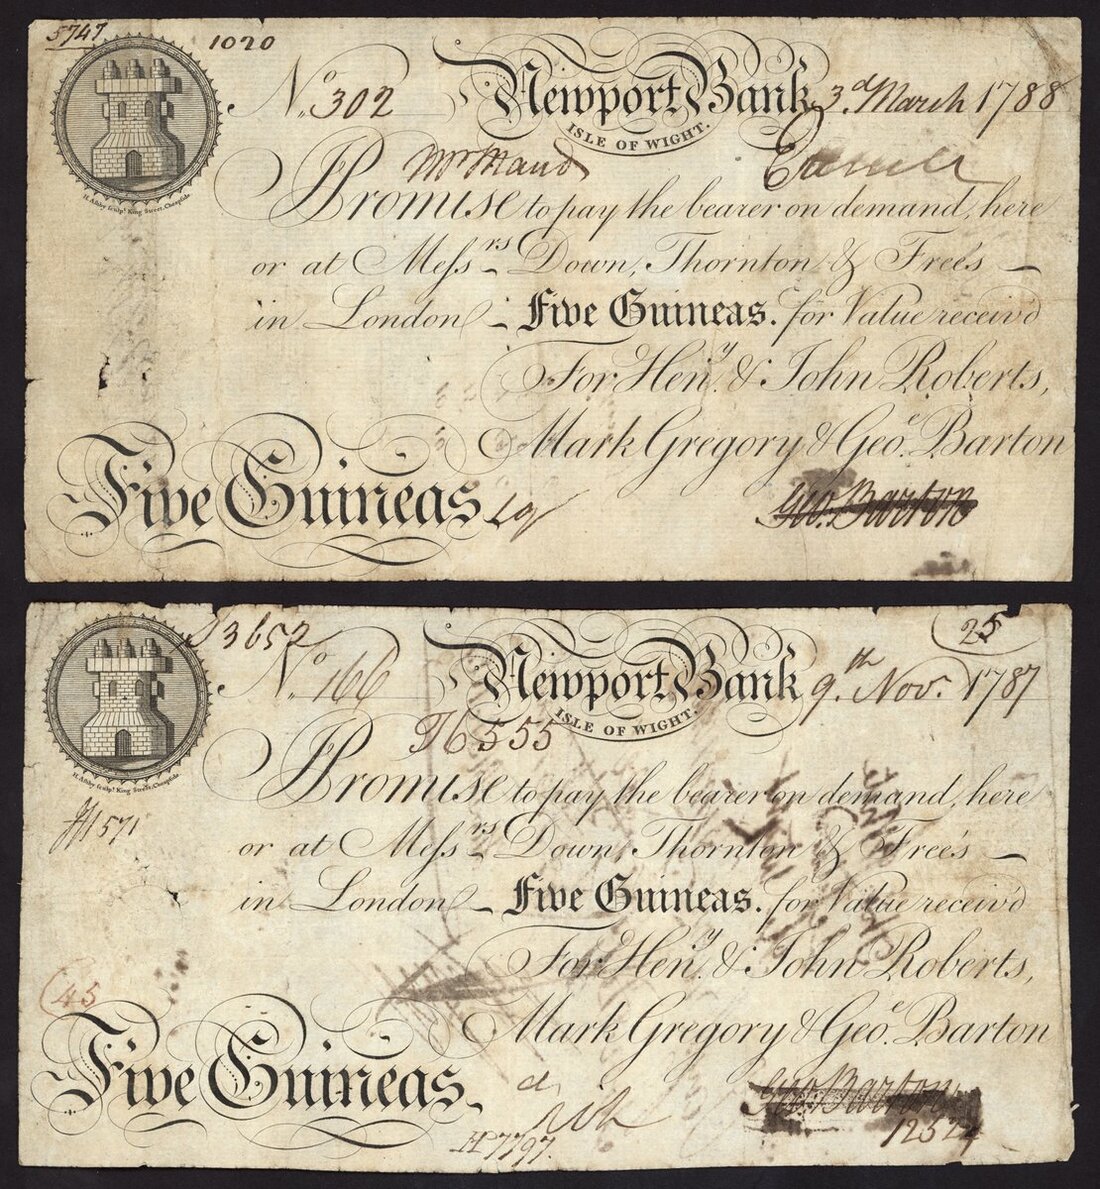 5747
1020
No. 302 Newport Bank 3d March 1788
ISLE OF WIGHT.
H. Ashby sculpt. King Street, Cheapside
I Promise to pay the bearer on demand, here
or at Messrs Down, Thornton & Free's
in London Five Guineas. for Value receiv'd
For Heny. & John Roberts,
Mark Gregory & Geoe. Barton
Five Guineas
Geo. Barton
25
3652
No. 166 Newport Bank 9th. Novr. 1787
ISLE OF WIGHT.
H. Ashby sculpt. King Street, Cheapside
I Promise to pay the bearer on demand, here
571
or at Messrs Down, Thornton & Free's
in London Five Guineas. for Value receiv'd
For Heny. & John Roberts,
45
Mark Gregory & Geoe. Barton
Five Guineas.
Geo. Barton
H7797